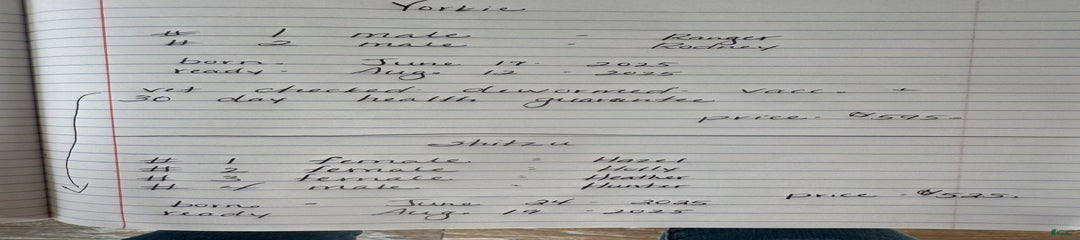 Yorkie
# 1 male - Ranger
# 2 male - Rodney
born - June 17 - 2025
ready - Aug. 12 - 2025
vet checked - dewormed - vacc. +
30 day health guarantee
price - $595.-
Shitzu
# 1 female - Hazel
# 2 female - Holly
# 3 female - Heather
# 4 male - Hunter
price - $525.
born - June 24 - 2025
ready Aug. 19 - 2025